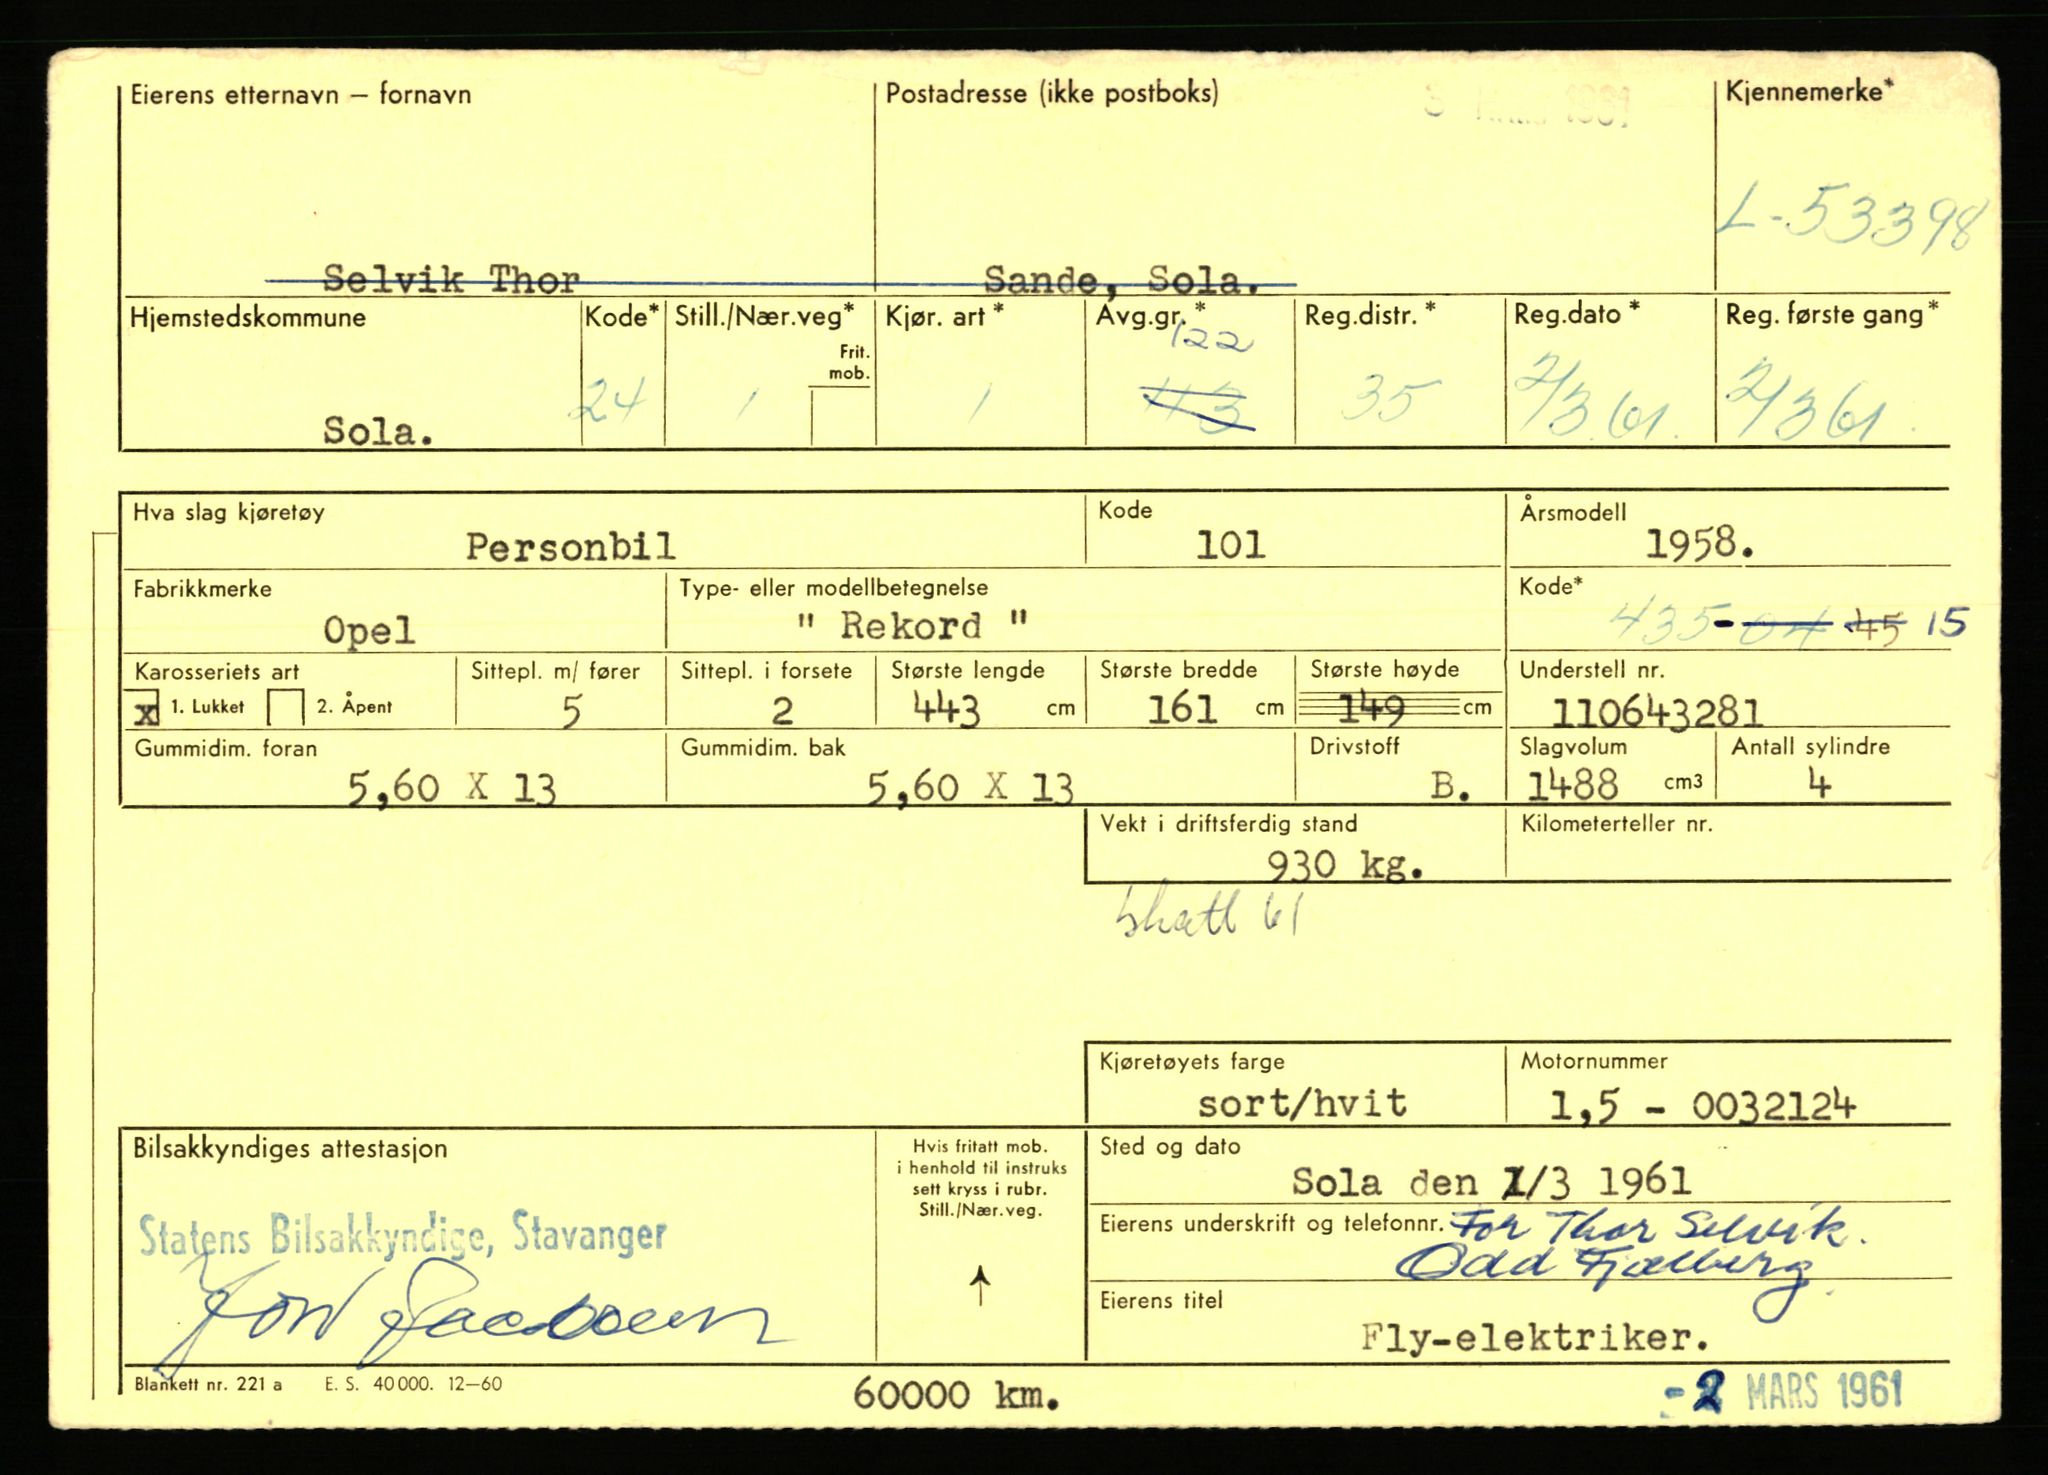 Eierens etternavn – fornavn Postadresse (ikke postboks) Kjennemerke*
1961
L-53398
Selvik Thor Sande, Sola.
Hjemstedskommune Kode* Still./Nær.veg* Kjør. art * Avg.gr. * Reg.distr. * Reg.dato * Reg. første gang*
Frit. mob.
122
Sola. 24 1 1 113 35 2/3 61. 2/3 61.
Hva slag kjøretøy Kode Årsmodell
Personbil 101 1958.
Fabrikkmerke Type- eller modellbetegnelse Kode*
Opel " Rekord " 435-04 45 15
Karosseriets art Sittepl. m/ fører Sittepl. i forsete Største lengde Største bredde Største høyde Understell nr.
x 1. Lukket 2. Åpent 5 2 443 cm 161 cm 149 cm 110643281
Gummidim. foran Gummidim. bak Drivstoff Slagvolum Antall sylindre
5,60 X 13 5,60 X 13 B. 1488 cm3 4
Vekt i driftsferdig stand Kilometerteller nr.
930 kg.
skatt 61
Kjøretøyets farge Motornummer
sort/hvit 1,5 - 0032124
Bilsakkyndiges attestasjon Hvis fritatt mob. i henhold til instruks sett kryss i rubr. Still./Nær.veg. Sted og dato
Sola den 1/3 1961
Statens Bilsakkyndige, Stavanger Eierens underskrift og telefonnr. For Thor Selvik.
Odd Fjælberg.
Eierens titel
Fly-elektriker.
Blankett nr. 221 a E. S. 40 000. 12–60 60000 km. -2 MARS 1961